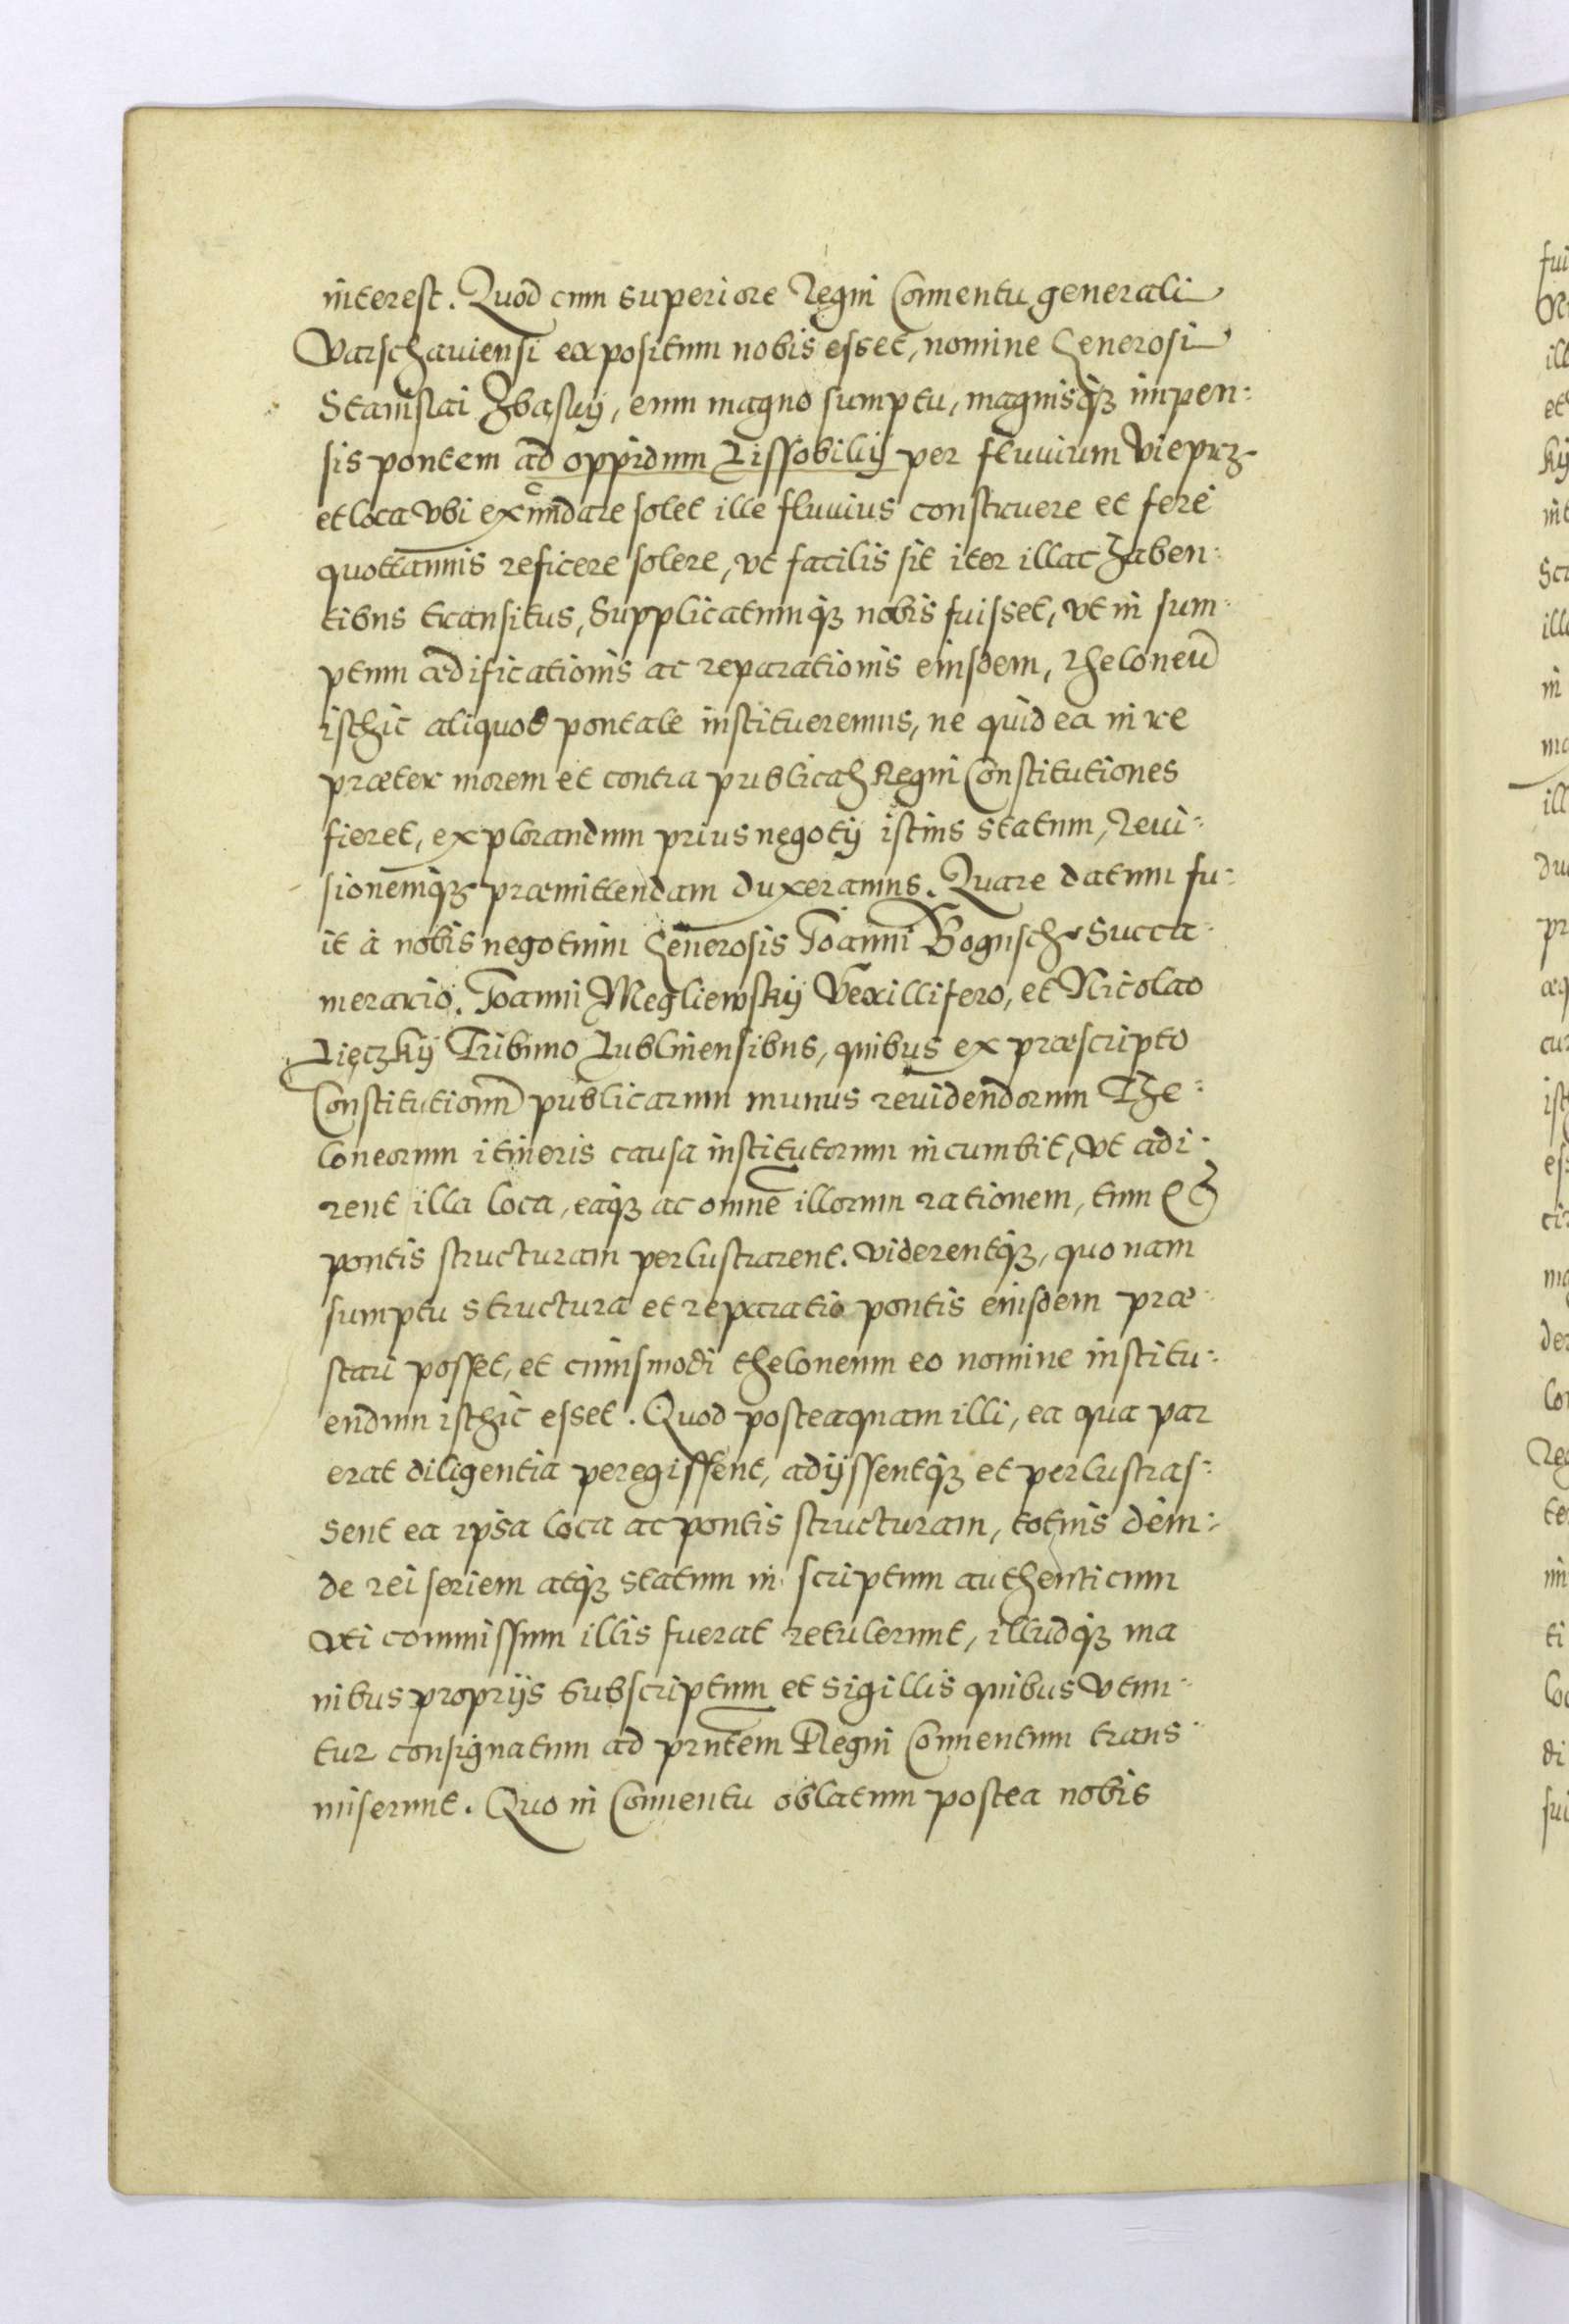 interest. Quod cum superiore Regni Conuentu generali
Varschauiensi expositum nobis esset, nomine Generosi
Stanislai Zbąskij, eum magno sumptu, magnisq₃ impen:
sis pontem ad oppidum Lissobikij per fluuium Vieprz
et loca vbi exundare solet ille fluuius construere et ferè
quottannis reficere solere, vt facilis sit iter illac haben:
tibus transitus, Supplicatumq₃ nobis fuisset, vt in sum:
ptum ædificationis ac reparationis eiusdem, theloneū
isthic aliquod pontale institueremus, ne quid ea in re
præter morem et contra publicas Regni Constitutiones
fieret, explorandum prius negotij istius statum, Reui:
sionemq₃ præmittendam duxeramus. Quare datum fu:
it à nobis negotium Generosis Joanni Bogusch Succa:
merario. Joanni Megliewskij Vexillifero, et Nicolao
Lięczkij Tribuno Lublinensibus, quibus ex præscripto
Constitutionū publicarum munus reuidendorum The:
loneorum itineris causa institutorum incumbit, vt adi:
rent illa loca, eaq₃ ac omnē illorum rationem, tum &
pontis structuram perlustrarent. viderentq₃, quo nam
sumptu structura et reparatio pontis eiusdem præ
stari posset, et cuiusmodi theloneum eo nomine institu:
endum isthic esset. Quod posteaquam illi, ea qua par
erat diligentia peregissent, adijssentq₃ et perlustras:
sent ea ipsa loca ac pontis structuram, totius dein:
de rei seriem atq₃ statum in scriptum authenticum
vti commissum illis fuerat retulerunt, illudq₃ ma
nibus proprijs subscriptum et sigillis quibus vtun:
tur consignatum ad prntem Regni Conuentum trans
miserunt. Quo in Conuentu oblatum postea nobis